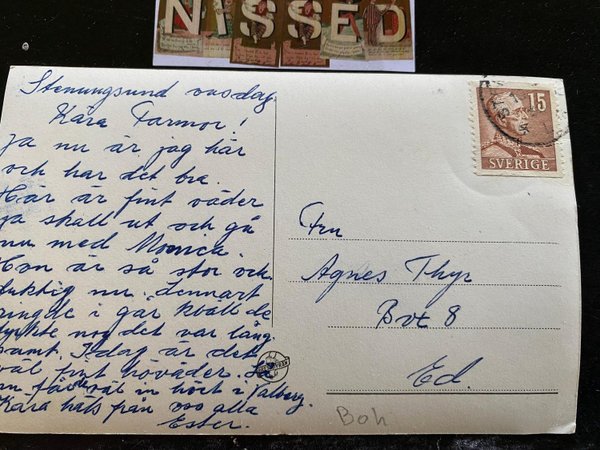 NISSED
Stenungsund onsdag
Kära Farmor!
Ja nu är jag här
och har det bra.
Här är fint väder
ja skall ut och gå
nu med Monica.
Hon är så stor och
duktig nu. Lennart
ringde i går kväll de
tyckte nog det var lång
samt. I dag är det
väl fint höväder. Så
nu får väl in höet i Valberg.
Kära häls från oss alla
Ester.
15
SVERIGE
Fru
Agnes Thyr
Box 8
Ed.
Boh